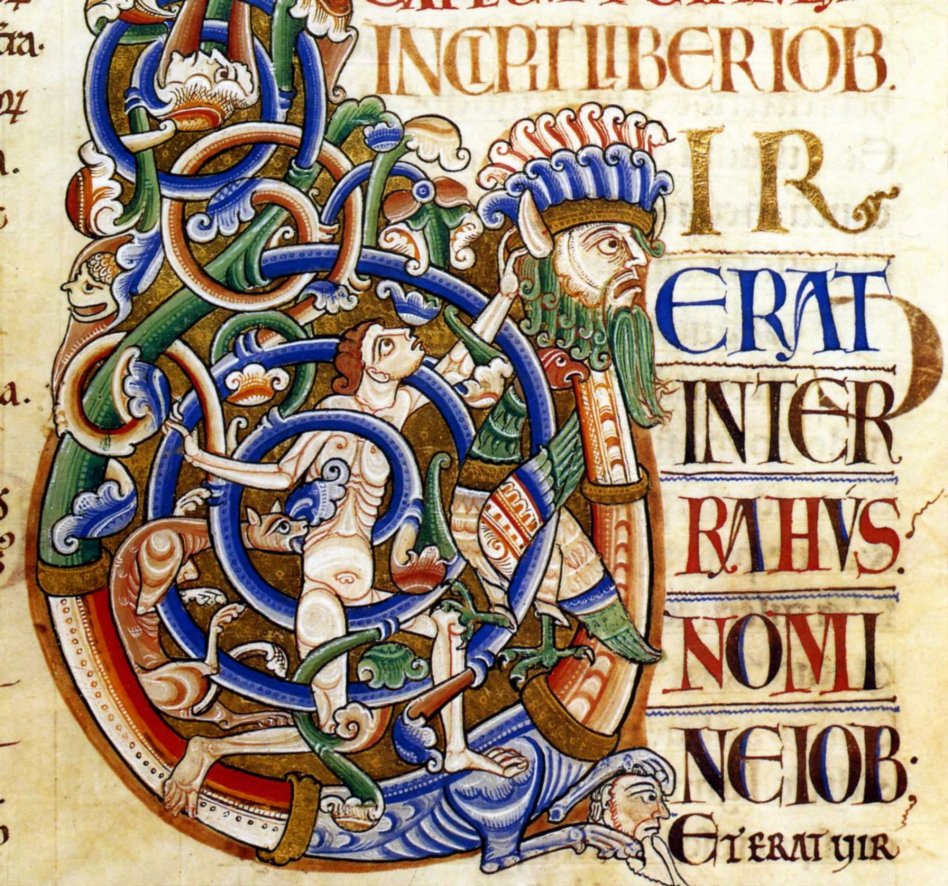 INCIPIT LIBER IOB.
IR
ERAT
INTER
RA HVS.
NOMI
NE IOB;
ET ERAT VIR